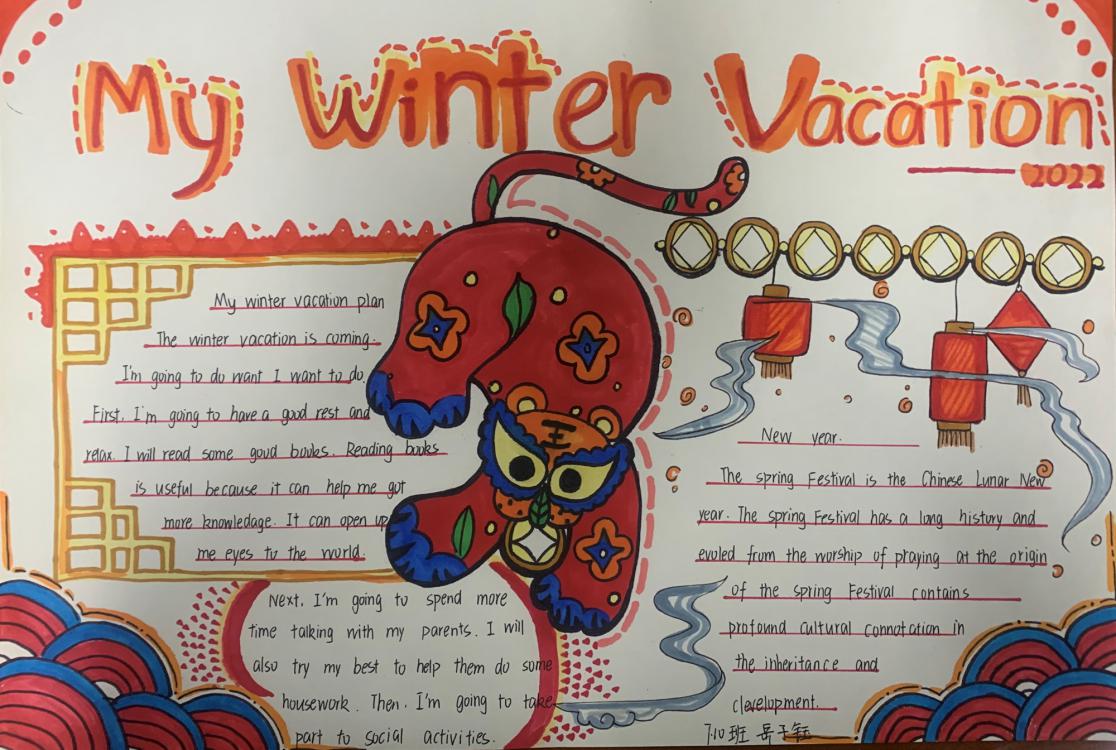 My Winter Vacation
2022
My winter vacation plan
The winter vacation is coming.
I'm going to do want I want to do.
First, I'm going to have a good rest and
relax. I will read some good books. Reading books
is useful because it can help me got
more knowledage. It can open up
me eyes to the world.
Next, I'm going to spend more
time talking with my parents. I will
also try my best to help them do some
housework. Then, I'm going to take
part to social activities.
王
New year.
The spring Festival is the Chinese Lunar New
year. The spring Festival has a long history and
evoled from the worship of praying at the origin
of the spring Festival contains
profound cultural connotation in
the inheritance and
clevelopment.
7.10班 岳子钰